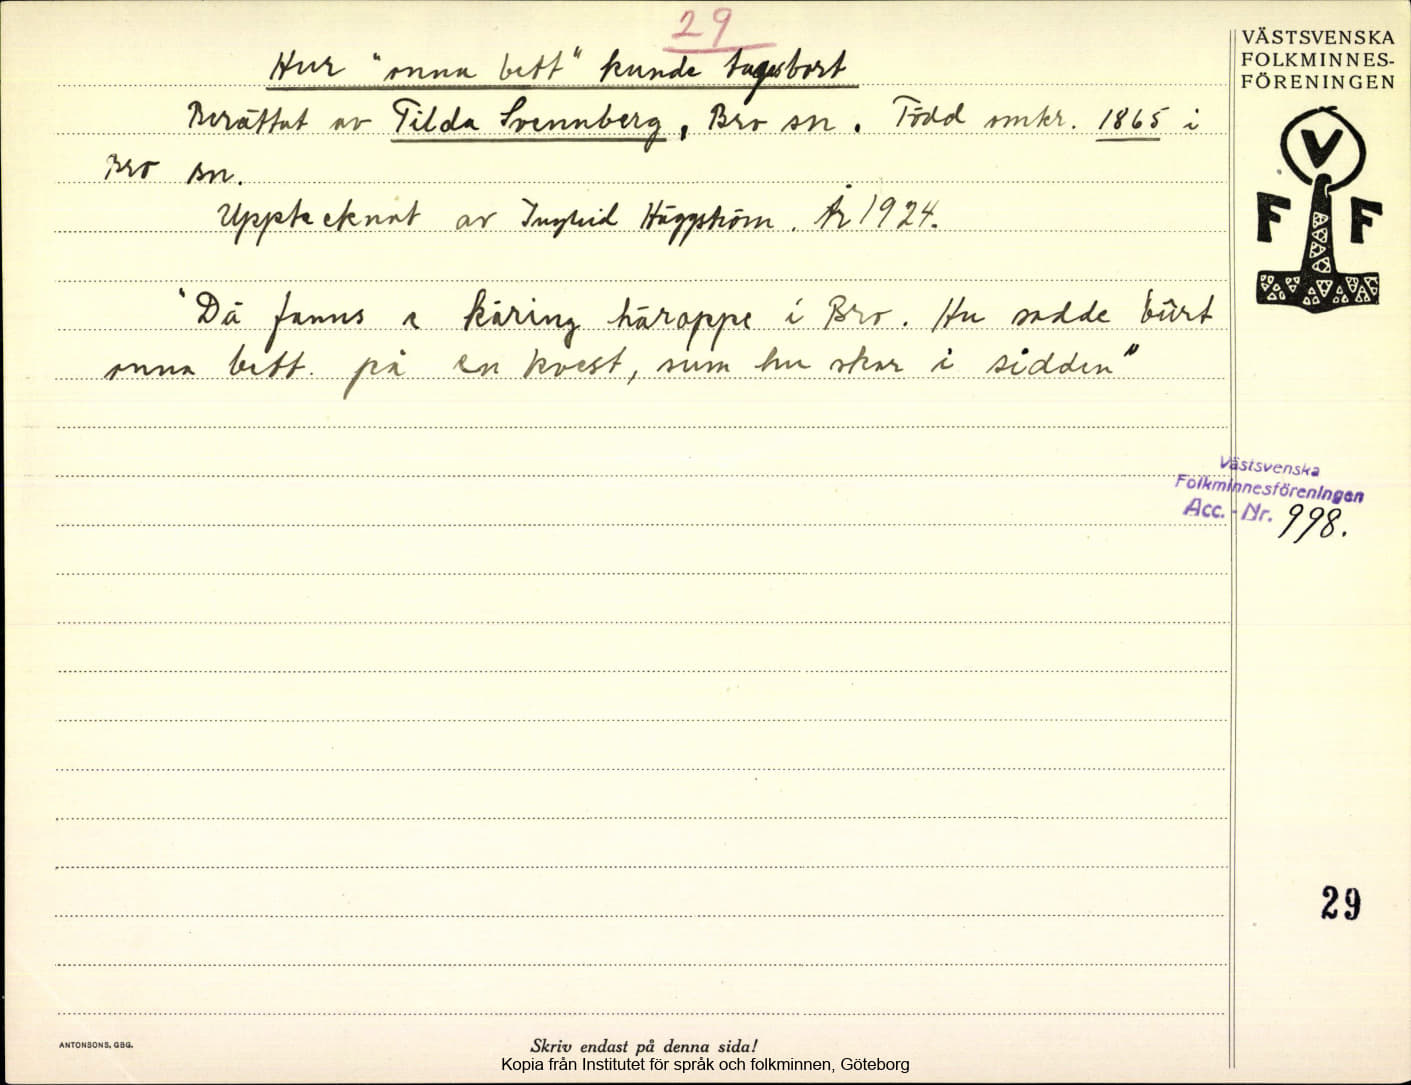 29
Hur "onna bett" kunde tagas bort
Berättat av Tilda Svennberg, Bro sn. Född omkr. 1865 i
Bro sn.
Upptecknat av Ingrid Häggström. År 1924.
"Dä fanns a käring häroppe i Bro. Hu sadde bûrt
onna bett. på en kvest, sum hu skar i sidden"
VÄSTSVENSKA
FOLKMINNES-
FÖRENINGEN
V
F F
Västsvenska
Folkminnesföreningen
Acc. - Nr. 998.
29
ANTONSONS, GBG.
Skriv endast på denna sida!
Kopia från Institutet för språk och folkminnen, Göteborg